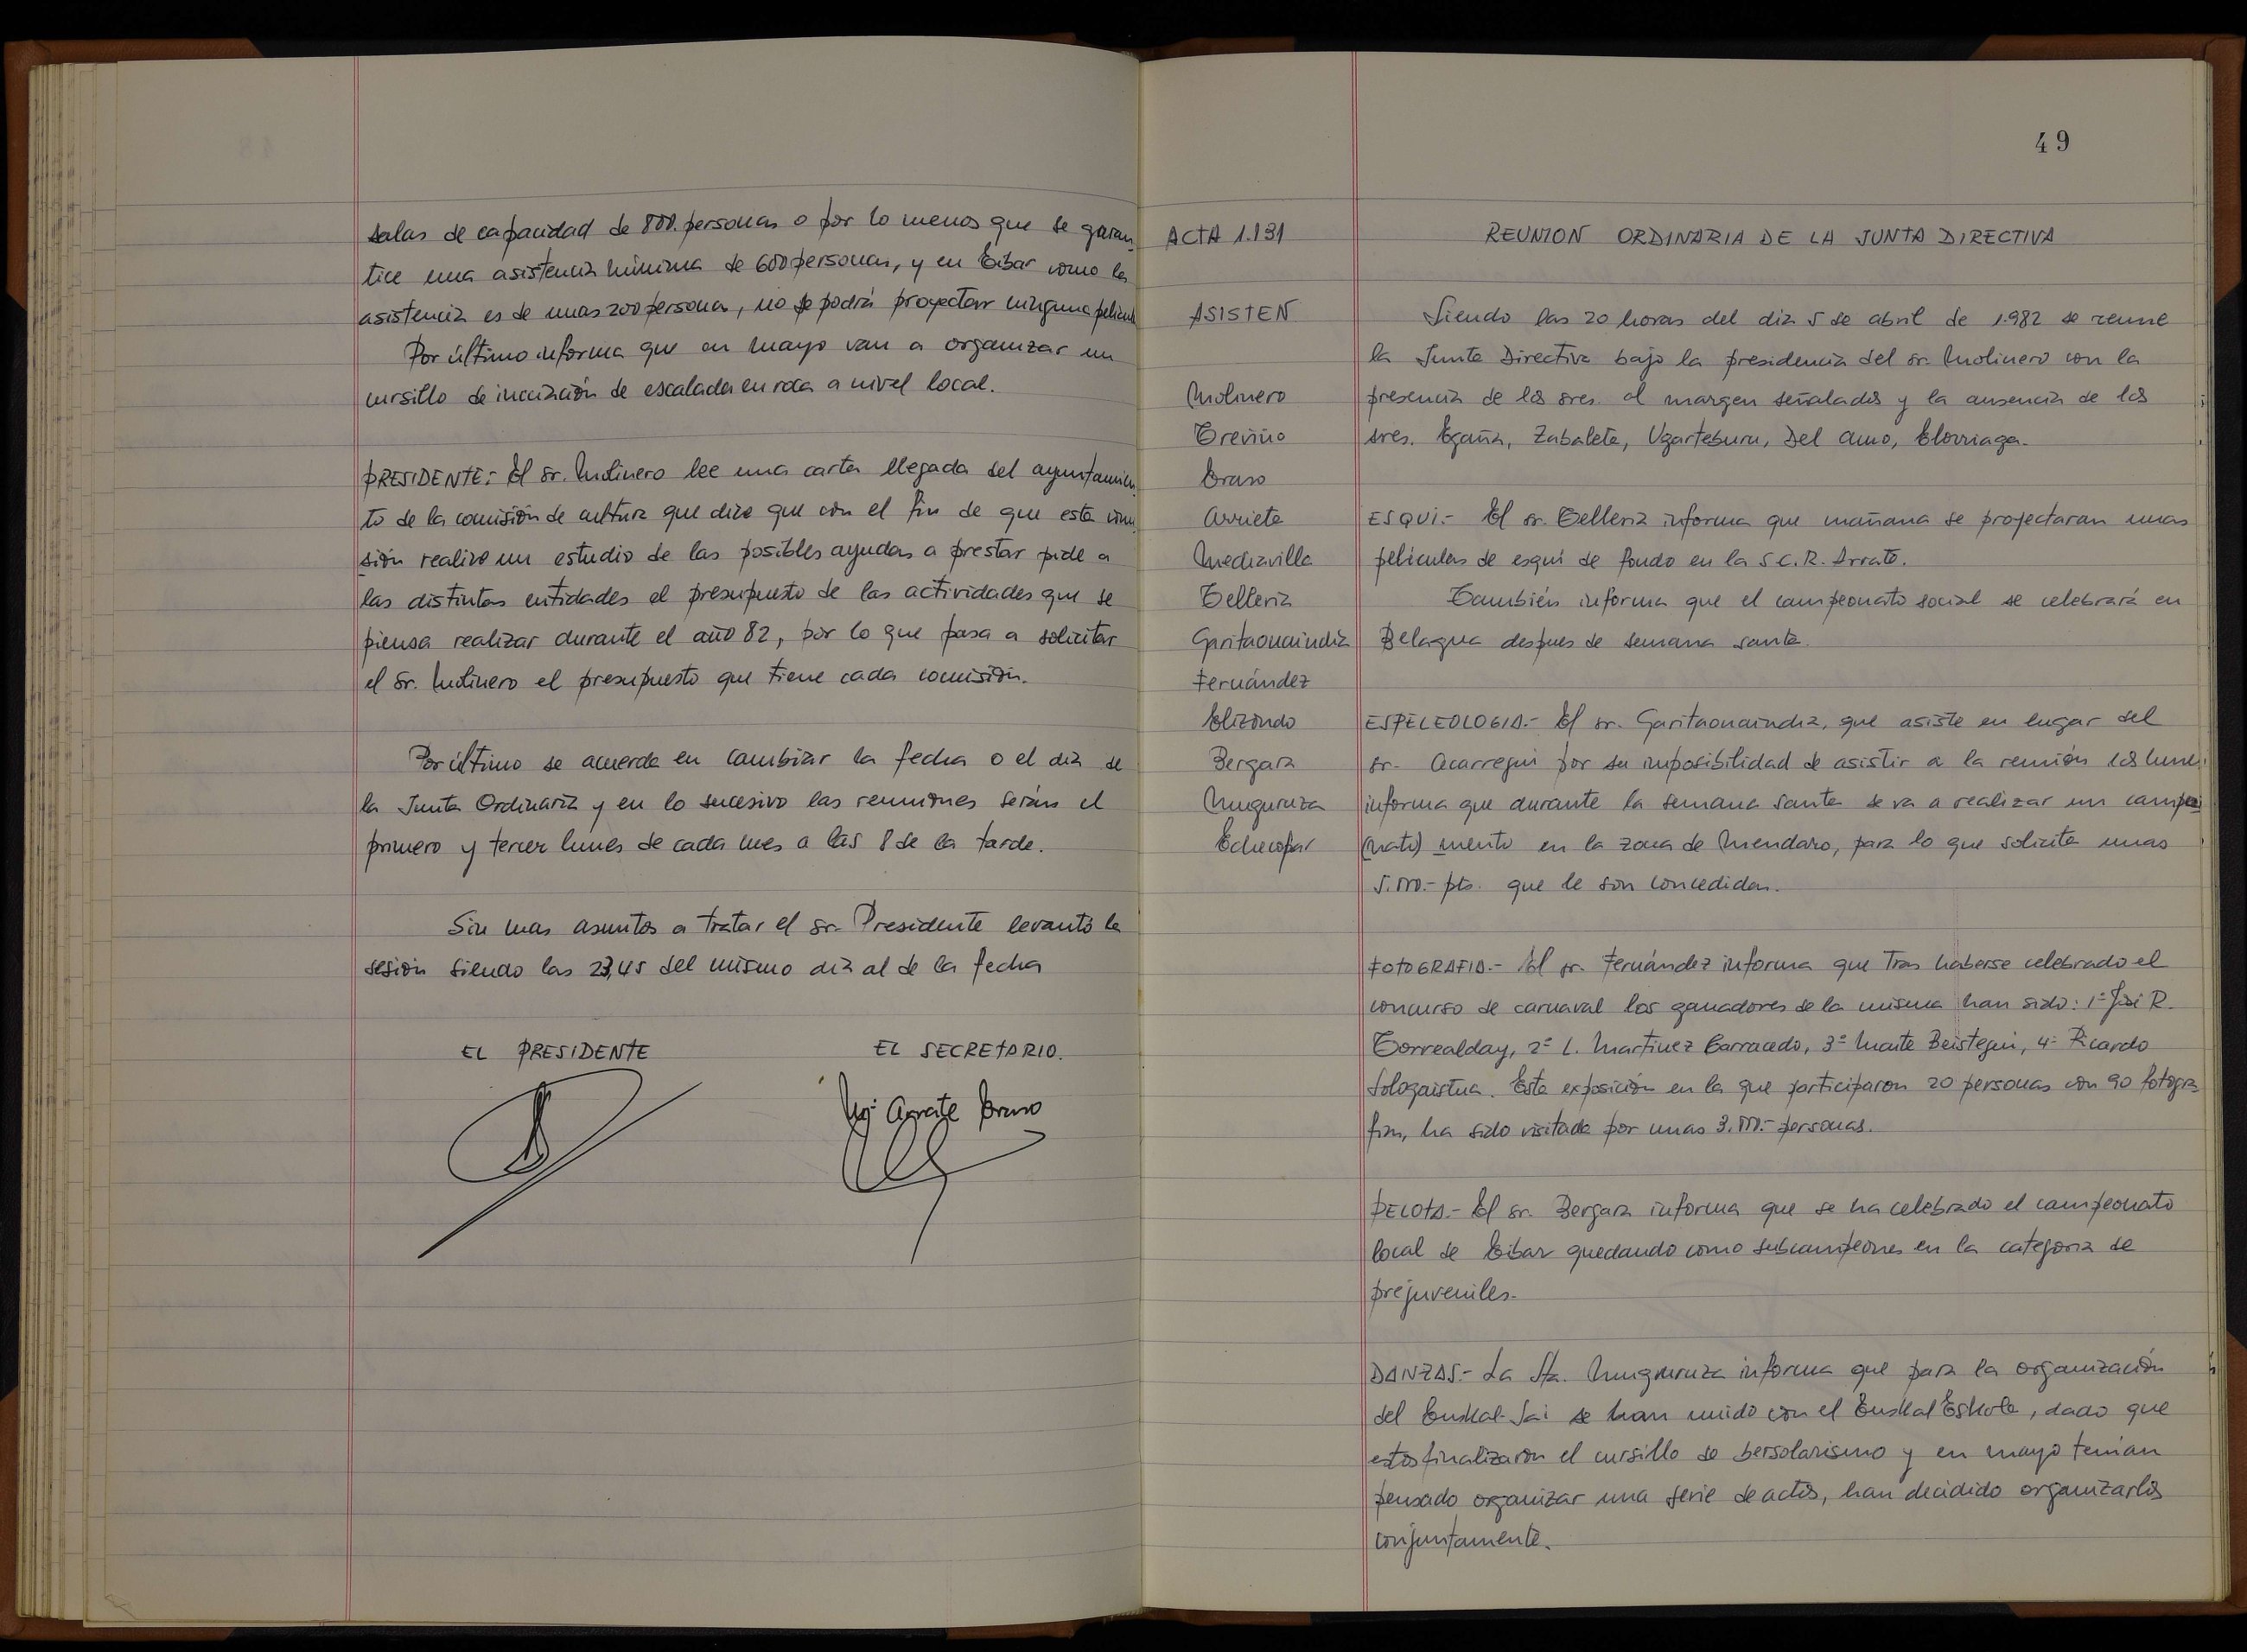 salas de capacidad de 800 personas o por lo menos que se garan
tice una asistencia mínima de 600 personas, y en Eibar como la
asistencia es de unas 200 persona, no se podrá proyectar ninguna pelicula
Por último informa que en mayo van a organizar un
cursillo de iniciación de escalada en roca a nivel local.
PRESIDENTE:- El sr. Molinero lee una carta llegada del ayuntamien
to de la comisión de cultura que dice que con el fin de que esta comi
sión realize un estudio de las posibles ayudas a prestar pide a
las distintas entidades el presupuesto de las actividades que se
piensa realizar durante el año 82, por lo que pasa a solicitar
el Sr. Molinero el presupuesto que tiene cada comisión.
Por último se acuerda en cambiar la fecha o el dia de
la Junta Ordinaria y en lo sucesivo las reuniones serán el
primero y tercer lunes de cada mes a las 8 de la tarde.
Sin mas asuntos a tratar el sr. Presidente levantó la
sesión siendo las 23,45 del mismo dia al de la fecha
EL PRESIDENTE
EL SECRETARIO.
49
ACTA 1.131
REUNION ORDINARIA DE LA JUNTA DIRECTIVA
ASISTEN
Molinero
Treviño
Eraso
Arrieta
Mediavilla
Telleria
Garitaonaindia
Fernández
Elizondo
Bergara
Muguruza
Echecopar
Siendo las 20 horas del dia 5 de abril de 1.982 se reune
la Junta Directiva bajo la presidencia del sr. Molinero con la
presencia de los sres. al margen señalados y la ausencia de los
sres. Egaña, Zabaleta, Ugarteburu, Del Amo, Elorriaga.
ESQUI.- El sr. Telleria informa que mañana se proyectaran unas
peliculas de esqui de fondo en la S.C.R. Arrate.
También informa que el campeonato social se celebrará en
Belagua despues de semana santa.
ESPELEOLOGIA.- El sr. Garitaonaindia, que asiste en lugar del
sr. Acarregui por su imposibilidad de asistir a la reunión los lunes,
informa que durante la semana santa se va a realizar un campa
(nato) mento en la zona de Mendaro, para lo que solicita unas
5.000.- pts. que le son concedidas.
FOTOGRAFIA.- El sr. Fernández informa que tras haberse celebrado el
concurso de carnaval los ganadores de la misma han sido: 1º José R.
Torrealday, 2º L. Martinez Carracedo, 3º Maite Beistegui, 4º Ricardo
Sologaistua. Esta exposición en la que participaron 20 personas con 90 fotogra
fias, ha sido visitada por unas 3.000.- personas.
PELOTA.- El sr. Bergara informa que se ha celebrado el campeonato
local de Eibar quedando como subcampeones en la categoria de
prejuveniles.
DANZAS.- La Sta. Muguruza informa que para la organización
del Euskal-Jai se han unido con el Euskal Eskola, dado que
estos finalizaron el cursillo de bersolarismo y en mayo tenian
pensado organizar una serie de actos, han decidido organizarlos
conjuntamente.